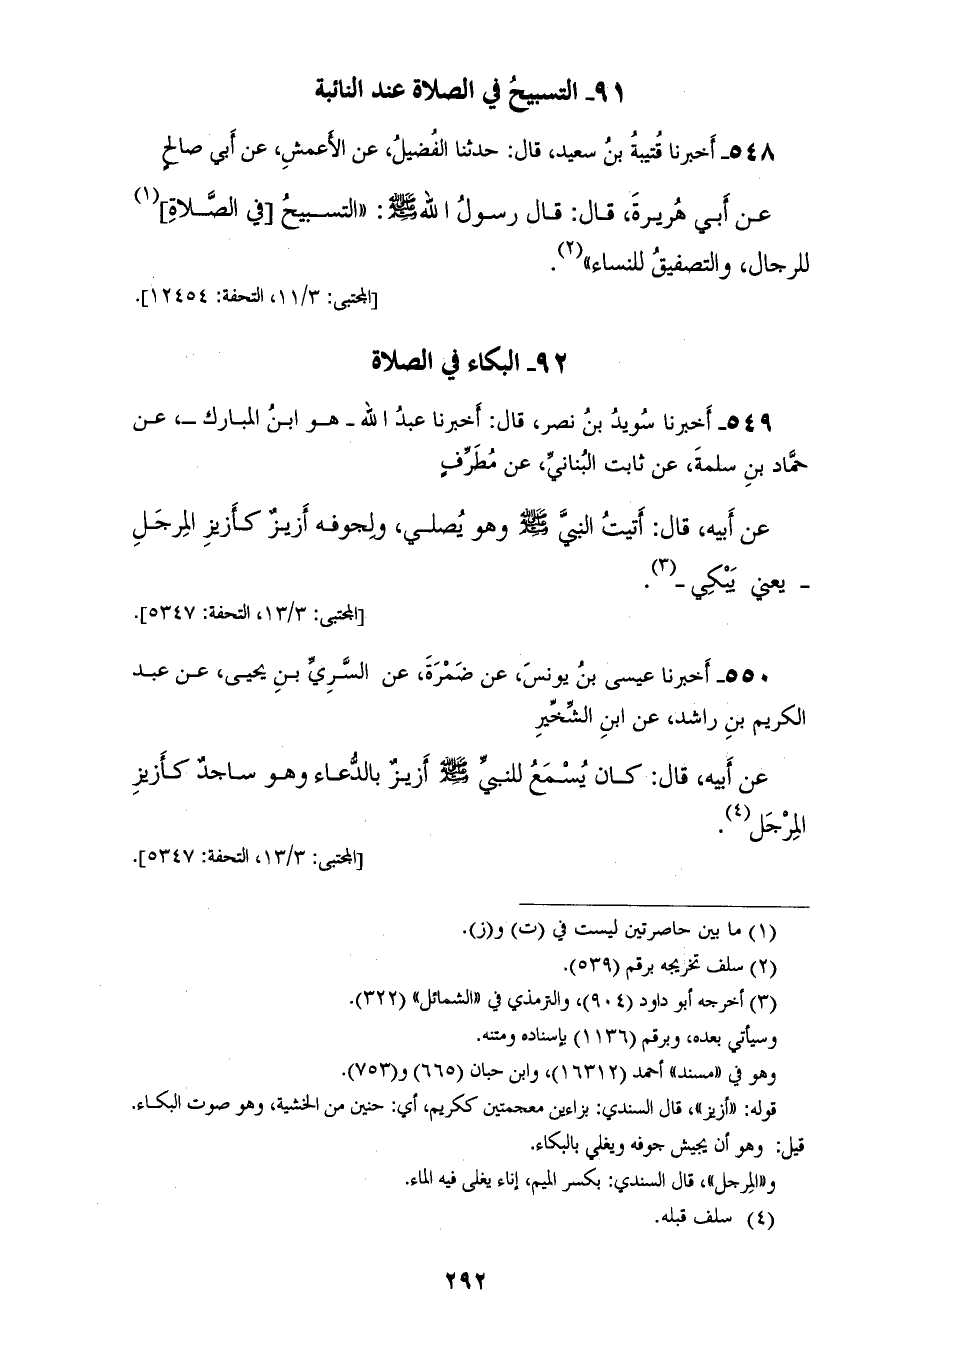 ٩١ـ التسبيحُ في الصلاة عند النائبة
٥٤٨ـ أخبرنا قُتيبةُ بنُ سعيد، قال: حدثنا الفُضيلُ، عن الأعمشِ، عن أبي صالحٍ
عن أبي هُريرةَ، قال: قال رسولُ الله ﷺ: «التسبيحُ [في الصَّلاةِ](١)
للرجال، والتصفيقُ للنساء»(٢).
[المجتبى: ١١/٣، التحفة: ١٢٤٥٤].
٩٢ـ البكاء في الصلاة
٥٤٩ـ أخبرنا سُويدُ بنُ نصر، قال: أخبرنا عبدُ الله ـ هو ابنُ المبارك ـ، عن
حمَّاد بنِ سلمةَ، عن ثابت البُنانيِّ، عن مُطَرِّفٍ
عن أبيه، قال: أتيتُ النبيَّ ﷺ وهو يُصلي، ولِجوفه أزيزٌ كأَزيزِ المِرجَلِ
ـ يعني يَبْكِي ـ(٣).
[المجتبى: ١٣/٣، التحفة: ٥٣٤٧].
٥٥٠ـ أخبرنا عيسى بنُ يونسَ، عن ضَمْرَةَ، عن السَّرِيِّ بنِ يحيى، عن عبد
الكريم بنِ راشد، عن ابنِ الشِّخِّيرِ
عن أبيه، قال: كان يُسْمَعُ للنبيِّ ﷺ أزيزٌ بالدُّعاء وهو ساجدٌ كأزيزِ
المِرْجَل(٤).
[المجتبى: ١٣/٣، التحفة: ٥٣٤٧].
(١) ما بين حاصرتين ليست في (ت) و(ز).
(٢) سلف تخريجه برقم (٥٣٩).
(٣) أخرجه أبو داود (٩٠٤)، والترمذي في «الشمائل» (٣٢٢).
وسيأتي بعده، وبرقم (١١٣٦) بإسناده ومتنه.
وهو في «مسند» أحمد (١٦٣١٢)، وابن حبان (٦٦٥) و(٧٥٣).
قوله: «أزيز»، قال السندي: بزاءين معجمتين ككريم، أي: حنين من الخشية، وهو صوت البكاء.
قيل: وهو أن يجيش جوفه ويغلي بالبكاء.
و«المِرجل»، قال السندي: بكسر الميم، إناء يغلى فيه الماء.
(٤) سلف قبله.
٢٩٢